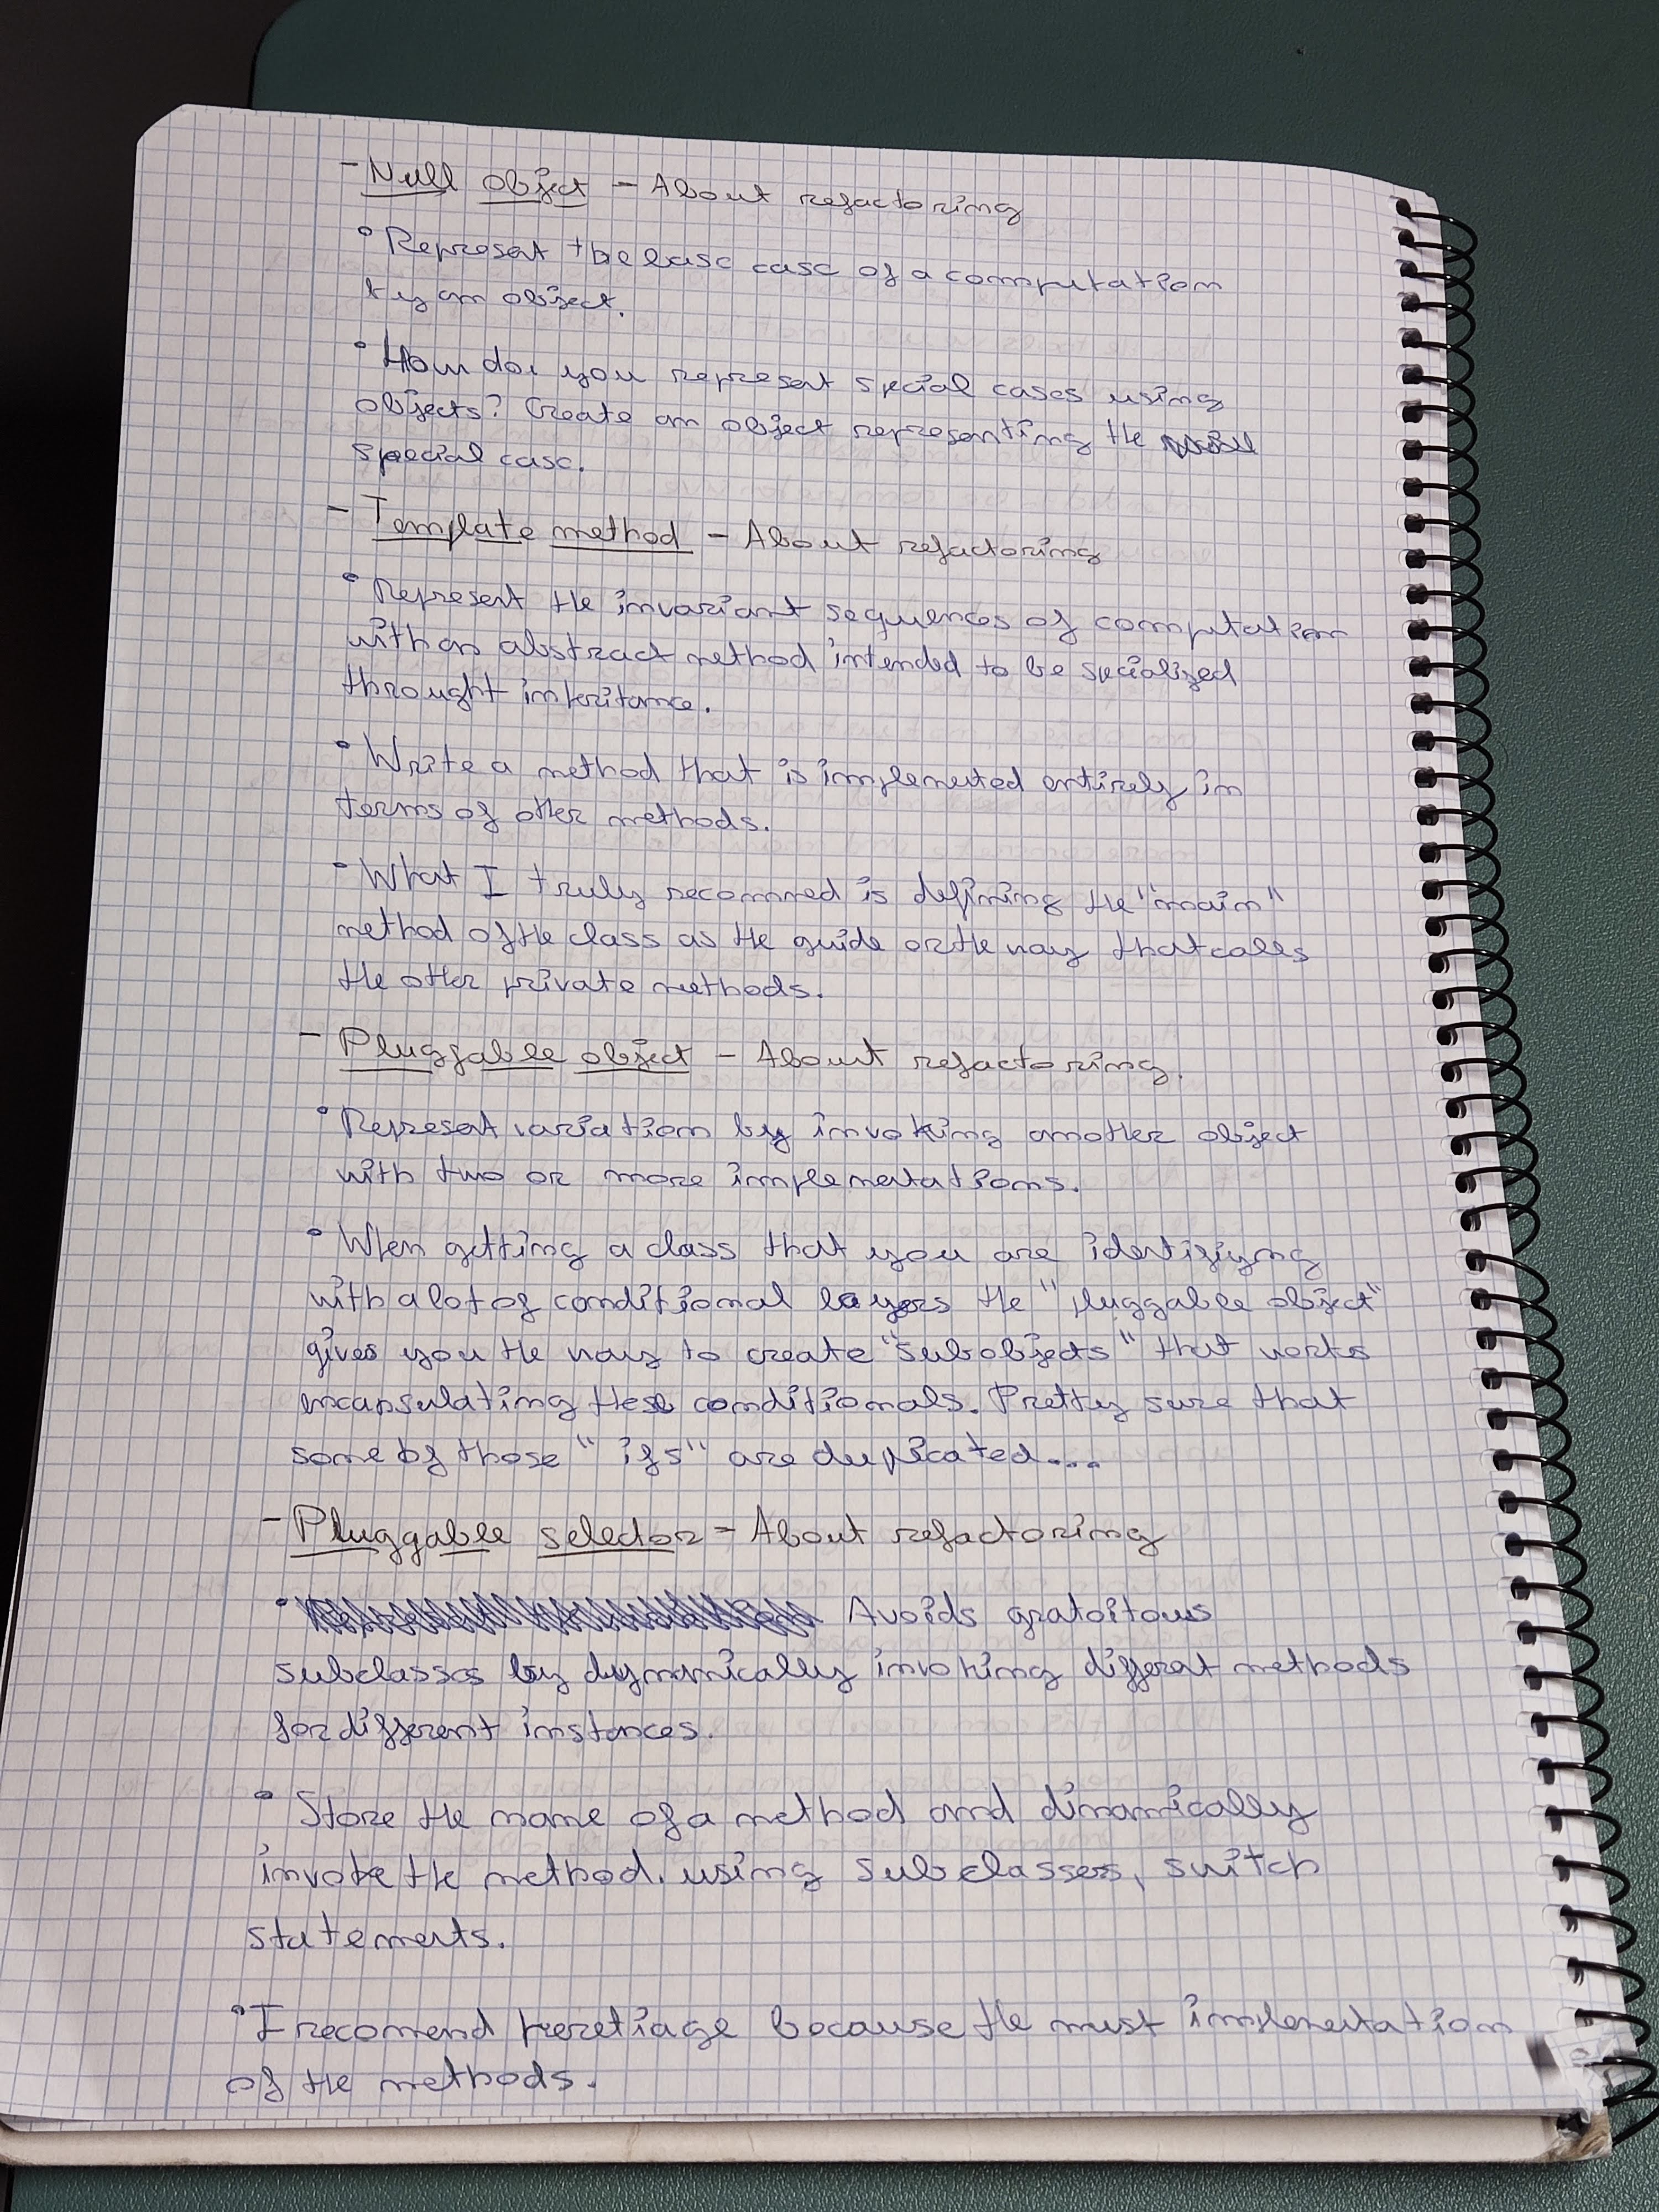 - Null object - About refactoring
• Represent the base case of a computation
by an object.
• How do you represent special cases using
objects? Create an object representing the
special case.
- Template method - About refactoring
• Represent the invariant sequences of computation
with an abstract method intended to be specialized
throught inheritance.
• Write a method that is implemented entirely in
terms of other methods.
• What I truly recommed is defining the "main"
method of the class as the guide or the way that calls
the other private methods.
- Pluggable object - About refactoring.
• Represent variation by invoking another object
with two or more implementations.
• When getting a class that you are identifiying
with a lot of conditional layers the "pluggable object"
gives you the way to create "subobjects" that works
encapsulating these conditionals. Pretty sure that
some of those "ifs" are duplicated...
- Pluggable selector - About refactoring
• Avoids gratoitous
subclasses by dynamically invoking different methods
for different instances.
• Store the name of a method and dinamically
invoke the method. using subclasses, switch
statements.
• I recomend heretiage because the must implementation
of the methods.